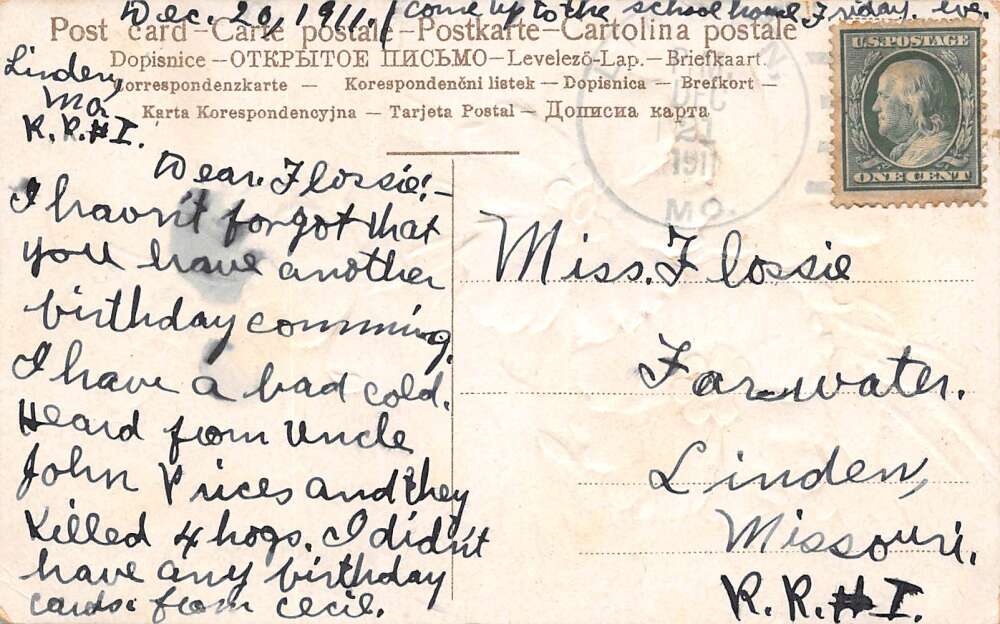 Dec. 20, 1911. / come up to the school house Friday. eve.
Post card – Carte postale – Postkarte – Cartolina postale
Dopisnice – ОТКРЫТОЕ ПИСЬМО – Levelezö-Lap. – Briefkaart.
Correspondenzkarte – Korespondenčni listek – Dopisnica – Brefkort –
Karta Korespondencyjna – Tarjeta Postal – Дописна карта
Linden,
Mo,
R.R.#I.
U.S. POSTAGE
ONE CENT
DEC
21
1911
MO.
Dear. Flossie! –
I havn't forgot that
you have another
birthday comming.
I have a bad cold.
Heard from Uncle
John Prices and they
killed 4 hogs. I did'nt
have any birthday
cards. from Cecil.
Miss. Flossie
Far-water.
Linden,
Missouri.
R.R.#I.